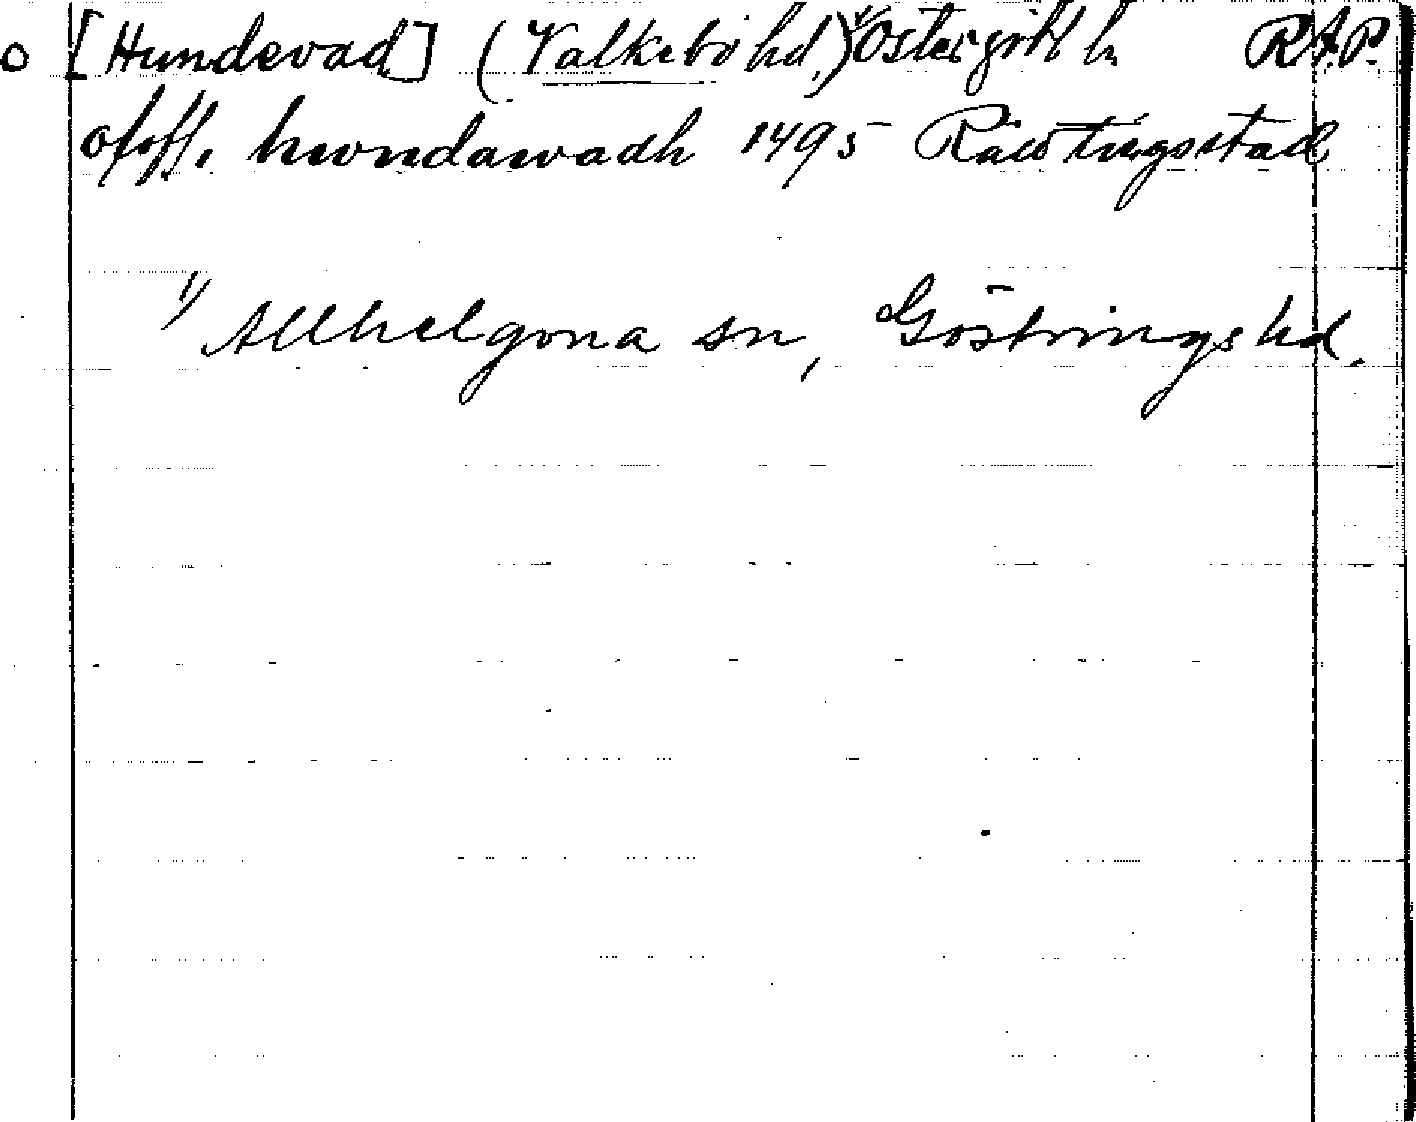 o [Hundevad] (Valkebo hd.)¹⁾ Östergötl ln RAP.
hwndawadh 1495
1/ Allhelgona sn, Göstrings hd.